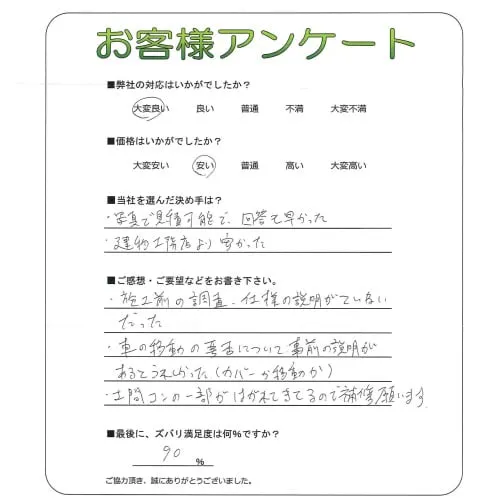 お客様アンケート
■弊社の対応はいかがでしたか?
大変良い 良い 普通 不満 大変不満
■価格はいかがでしたか?
大変安い 安い 普通 高い 大変高い
■当社を選んだ決め手は?
・写真で見積可能で、回答も早かった
・建物工務店より安かった
■ご感想・ご要望などをお書き下さい。
・施工前の調査、仕様の説明がていねい
だった
・車の移動の要否について事前の説明が
あるとうれしかった(カバーか移動か)
・土間コンの一部がはがれてきてるので補修願います。
■最後に、ズバリ満足度は何%ですか?
90 %
ご協力頂き、誠にありがとうございました。